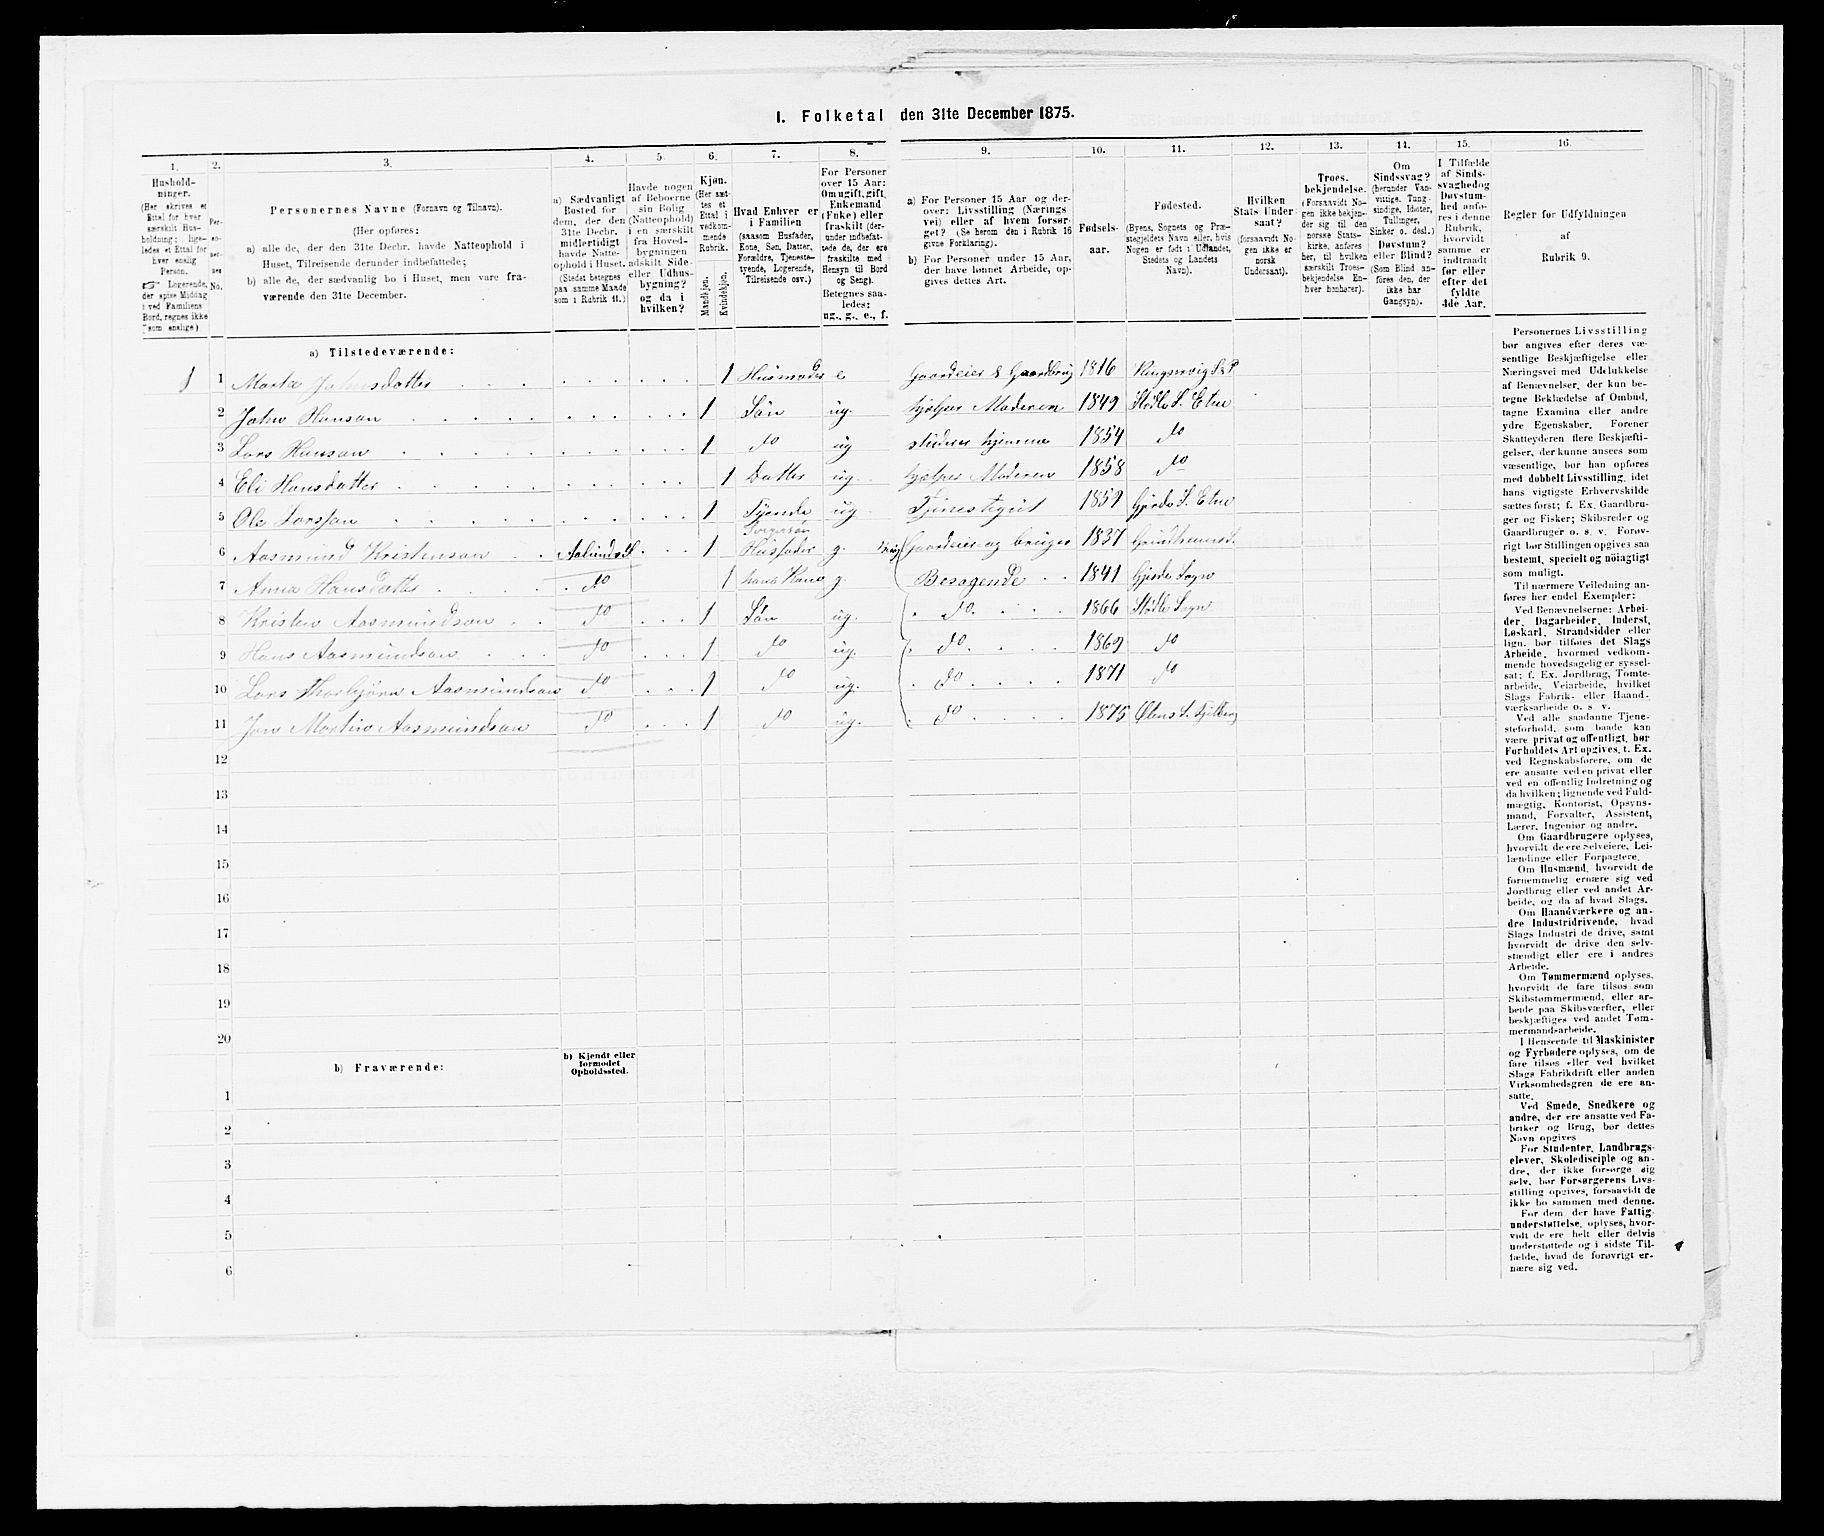 I. Folketal den 31te December 1875.
1. 2. 3. 4. 5. 6. 7. 8. 9. 10. 11. 12. 13. 14. 15. 16.
Hushold-
ninger.
(Her skrives et
Ettal for hver
særskilt Hus-
holdning; lige-
ledes et Ettal for
hver enslig
Person.
☞ Logerende,
der spise Middag
i ved Familiens
Bord, regnes ikke
som enslige)
Per-
so-
ner-
nes
No.
Personernes Navne (Fornavn og Tilnavn).
(Her opføres:
a) alle de, der den 31te Decbr. havde Natteophold i
Huset, Tilreisende derunder indbefattede;
b) alle de, der sædvanlig bo i Huset, men vare fra-
værende den 31te December.
a) Sædvanligt
Bosted for
dem, der den
31te Decbr.
midlertidigt
havde Natte-
ophold i Huset.
(Stedet betegnes
paa samme Maade
som i Rubrik 11.)
Havde nogen
af Beboerne
sin Bolig
(Natteophold)
i en særskilt
fra Hoved-
bygningen
adskilt Side-
eller Udhus-
bygning?
og da i
hvilken?
Kjøn.
(Her sæt-
tes et
Ettal i
vedkom-
mende
Rubrik.
Mandkjøn.
Kvindekjøn.
Hvad Enhver er
i Familien
(saasom Husfader,
Kone, Søn, Datter,
Forældre, Tjeneste-
tyende, Logerende,
Tilreisende osv.)
For Personer
over 15 Aar:
Om ugift, gift,
Enkemand
(Enke) eller
fraskilt (der-
under indbefat-
tede de, der ere
fraskilte med
Hensyn til Bord
og Seng).
Betegnes saa-
ledes:
ug., g., e., f.
a) For Personer 15 Aar og der-
over: Livsstilling (Nærings
vei) eller af hvem forsør-
get? (Se herom den i Rubrik 16
givne Forklaring).
b) For Personer under 15 Aar,
der have lønnet Arbeide, op-
gives dettes Art.
Fødsels-
aar.
Fødested.
(Byens, Sognets og Præ-
stegjeldets Navn eller, hvis
Nogen er født i Udlandet,
Stedets og Landets
Navn).
Hvilken
Stats Under-
saat?
(forsaavidt No-
gen ikke er
norsk
Undersaat).
Troes-
bekjendelse.
(Forsaavidt No-
gen ikke bekjen-
der sig til den
norske Stats-
kirke, anføres
her, til hvilken
særskilt Troes-
bekjendelse En-
hver henhører).
Om
Sindssvag?
(herunder Van-
vittige, Tung-
sindige, Idioter,
Tullinger,
Sinker o. desl.)
Døvstum?
eller Blind?
(Som Blind an-
føres den, der
ikke har
Gangsyn).
I Tilfælde
af Sinds-
svaghed og
Døvstum-
hed anfø-
res i denne
Rubrik,
hvorvidt
samme er
indtraadt
før eller
efter det
fyldte
4de Aar.
Regler for Udfyldningen
af
Rubrik 9.
a) Tilstedeværende:
1 1 Marta Johnsdatter 1 Husmoder e Gaardeier & Gaardbrug 1816
2 John Hansen 1 Søn ug. hjelper Moderen 1849 Stødle S. Etne
3 Lars Hansen 1 do ug 1854 do
4 Eli Hansdatter 1 Datter ug. hjelper Moderen 1858 do
5 Ole Larssen 1 Tjende ug. Tjenestegut 1859 Gjerde S. Etne
6 Aasmund Kristensen 1 Husfader g. Gaardeier og bruger 1837
7 Anna Hansdatter do 1 hans Kone g. Besøgende 1841 Gjerde Sogn
8 Kristen Aasmundsen do 1 Søn ug. do. 1866 Stødle Sogn
9 Hans Aasmundsen do 1 do ug. do. 1869 do
10 Lars Thorbjørn Aasmundsen do 1 do ug. do 1871 do
11 Jon Martin Aasmundsen do 1 do ug. do 1875 Ølens S.
12
13
14
15
16
17
18
19
20
b) Fraværende:
b) Kjendt eller
formodet
Opholdssted.
1
2
3
4
5
6
Personernes Livsstilling
bør angives efter deres væ-
sentlige Beskjæftigelse eller
Næringsvei med Udelukkelse
af Benævnelser, der kun be-
tegne Beklædelse af Ombud,
tagne Examina eller andre
ydre Egenskaber. Forener
Skatteyderen flere Beskjæfti-
gelser, der kunne ansees som
væsentlige, bør han opføres
med dobbelt Livsstilling, idet
hans vigtigste Erhvervskilde
sættes først; f. Ex. Gaardbru-
ger og Fisker; Skibsreder og
Gaardbruger o. s. v. Forøv-
rigt bør Stillingen opgives saa
bestemt, specielt og nøiagtigt
som muligt.
Til nærmere Veiledning an-
føres her endel Exempler:
Ved Benævnelserne: Arbei-
der, Dagarbeider, Inderst,
Løskarl, Strandsidder eller
lign. bør tilføies det Slags
Arbeide, hvormed vedkom-
mende hovedsagelig er syssel-
sat; f. Ex. Jordbrug, Tomte-
arbeide, Veiarbeide, hvilket
Slags Fabrik- eller Haand-
værksarbeide o. s. v.
Ved alle saadanne Tjene-
steforhold, som baade kan
være privat og offentligt, bør
Forholdets Art opgives, t. Ex.
ved Regnskabsførere, om de
ere ansatte ved en privat eller
ved en offentlig Indretning og
da hvilken; lignende ved Fuld-
mægtig, Kontorist, Opsyns-
mand, Forvalter, Assistent,
Lærer, Ingeniør og andre.
Om Gaardbrugere oplyses,
hvorvidt de ere Selveiere, Lei-
lændinge eller Forpagtere.
Om Husmænd, hvorvidt de
fornemmelig ernære sig ved
Jordbrug eller ved andet Ar-
beide, og da af hvad Slags.
Om Haandværkere og an-
dre Industridrivende, hvad
Slags Industri de drive, samt
hvorvidt de drive den selv-
stændigt eller ere i andres
Arbeide.
Om Tømmermænd oplyses,
hvorvidt de fare tilsøs som
Skibstømmermænd, eller ar-
beide paa Skibsværfter, eller
beskjæftiges ved andet Tøm-
mermandsarbeide.
I Henseende til Maskinister
og Fyrbødere oplyses, om de
fare tilsøs eller ved hvilket
Slags Fabrikdrift eller anden
Virksomhedsgren de ere an-
satte.
Ved Smede, Snedkere og
andre, der ere ansatte ved Fa-
briker og Brug, bør dettes
Navn opgives
For Studenter, Landbrugs-
elever, Skoledisciple og an-
dre, der ikke forsørge sig
selv, bør Forsørgerens Livs-
stilling opgives, forsaavidt de
ikke bo sammen med denne.
For dem, der have Fattig-
understøttelse, oplyses, hvor-
vidt de ere helt eller delvis
understøttede og i sidste Til-
fælde, hvad de forøvrigt er-
nære sig ved.